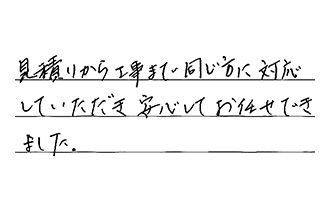 見積りから工事まで同じ方に対応
していただき安心してお任せでき
ました。